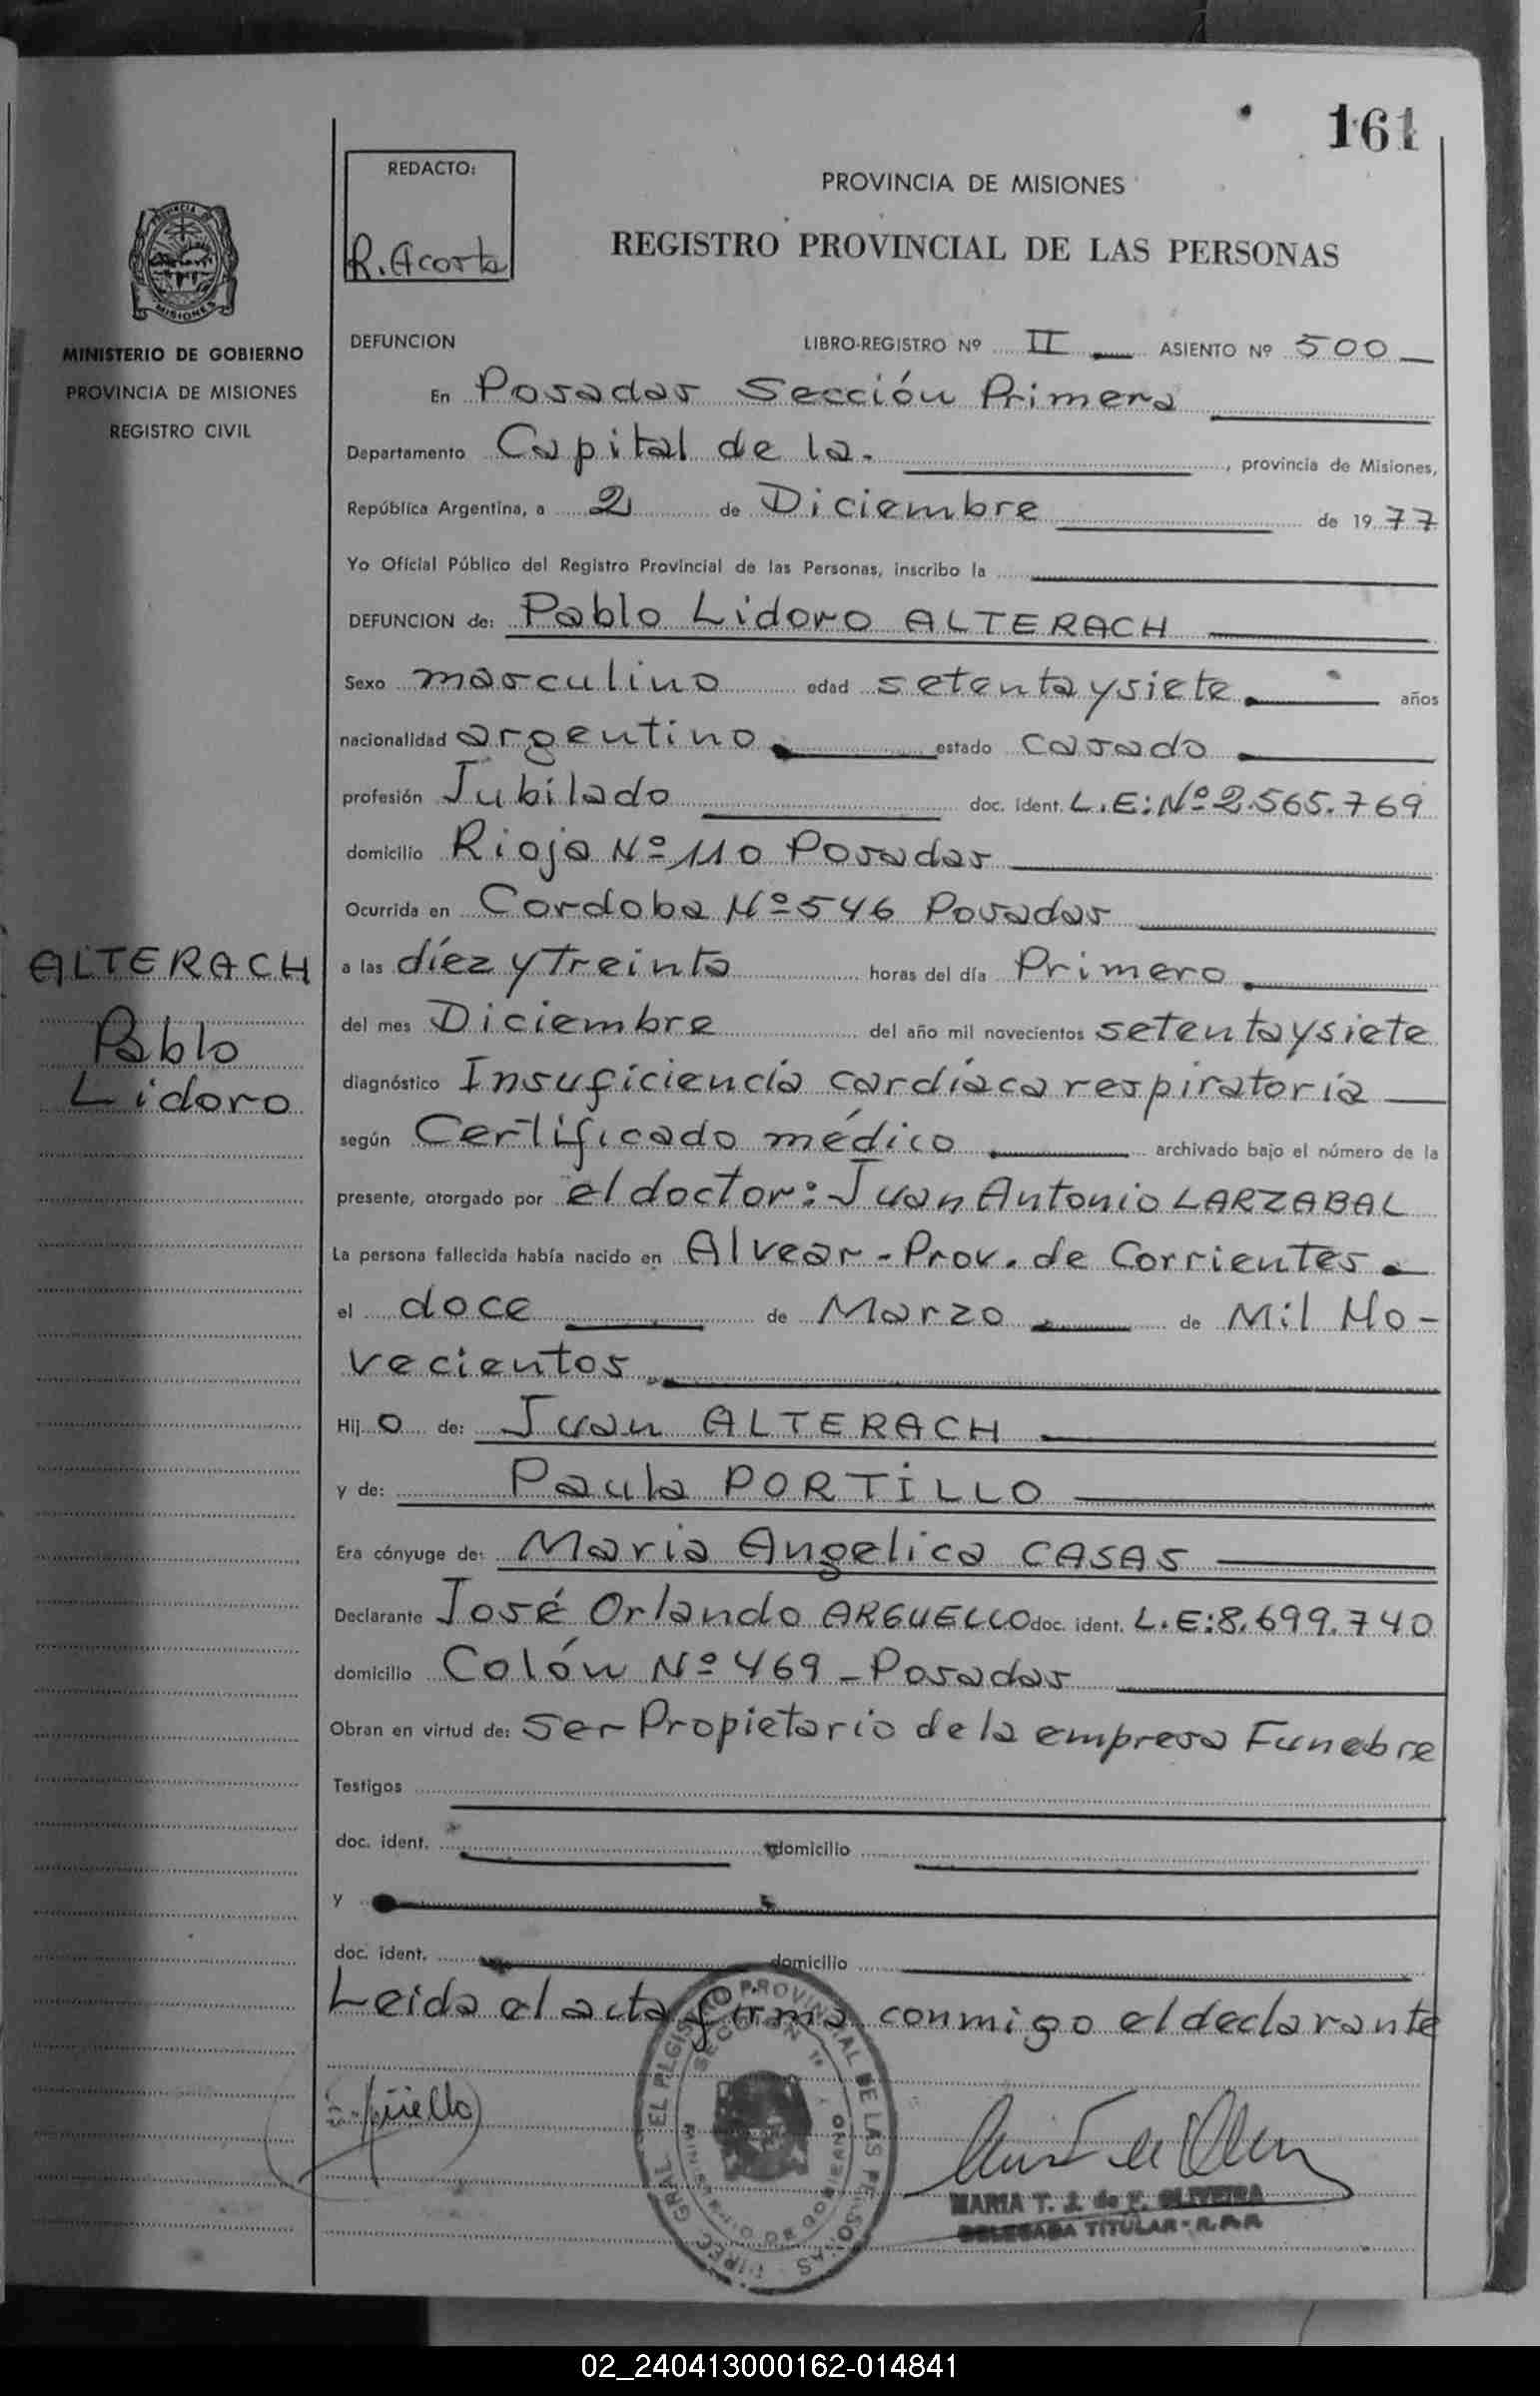 161
REDACTO:
R. Acosta
PROVINCIA DE MISIONES
REGISTRO PROVINCIAL DE LAS PERSONAS
PROVINCIA DE
MISIONES
MINISTERIO DE GOBIERNO
PROVINCIA DE MISIONES
REGISTRO CIVIL
DEFUNCION LIBRO-REGISTRO Nº II ASIENTO Nº 500
En Posadas Sección Primera
Departamento Capital de la. , provincia de Misiones,
República Argentina, a 2 de Diciembre de 1977
Yo Oficial Público del Registro Provincial de las Personas, inscribo la
DEFUNCION de: Pablo Lidoro ALTERACH
Sexo masculino edad setenta y siete. años
nacionalidad argentino. estado casado
profesión Jubilado doc. ident. L.E: Nº 2.565.769
domicilio Rioja Nº 110 Posadas
Ocurrida en Cordoba Nº 546 Posadas
ALTERACH
Pablo
Lidoro
a las díez y Treinta horas del día Primero
del mes Diciembre del año mil novecientos setenta y siete
diagnóstico Insuficiencia cardíaca respiratoria
según Certificado médico archivado bajo el número de la
presente, otorgado por el doctor: Juan Antonio LARZABAL
La persona fallecida había nacido en Alvear - Prov. de Corrientes.
el doce de Marzo de Mil No-
vecientos
Hijo de: Juan ALTERACH
y de: Paula PORTILLO
Era cónyuge de: Maria Angelica CASAS
Declarante José Orlando ARGUELLO doc. ident. L.E: 8.699.740
domicilio Colón Nº 469 - Posadas
Obran en virtud de: Ser Propietario de la empresa Funebre
Testigos
doc. ident. domicilio
y
doc. ident. domicilio
Leida el acta firma conmigo el declarante
MARIA T. J. de F. OLIVEIRA
DELEGADA TITULAR - R.P.P.
02_240413000162-014841